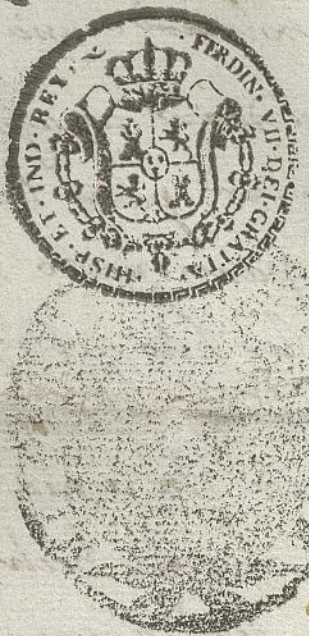 FERDIN· VII· DEI· GRATIA· HISP· ET· IND· REY·